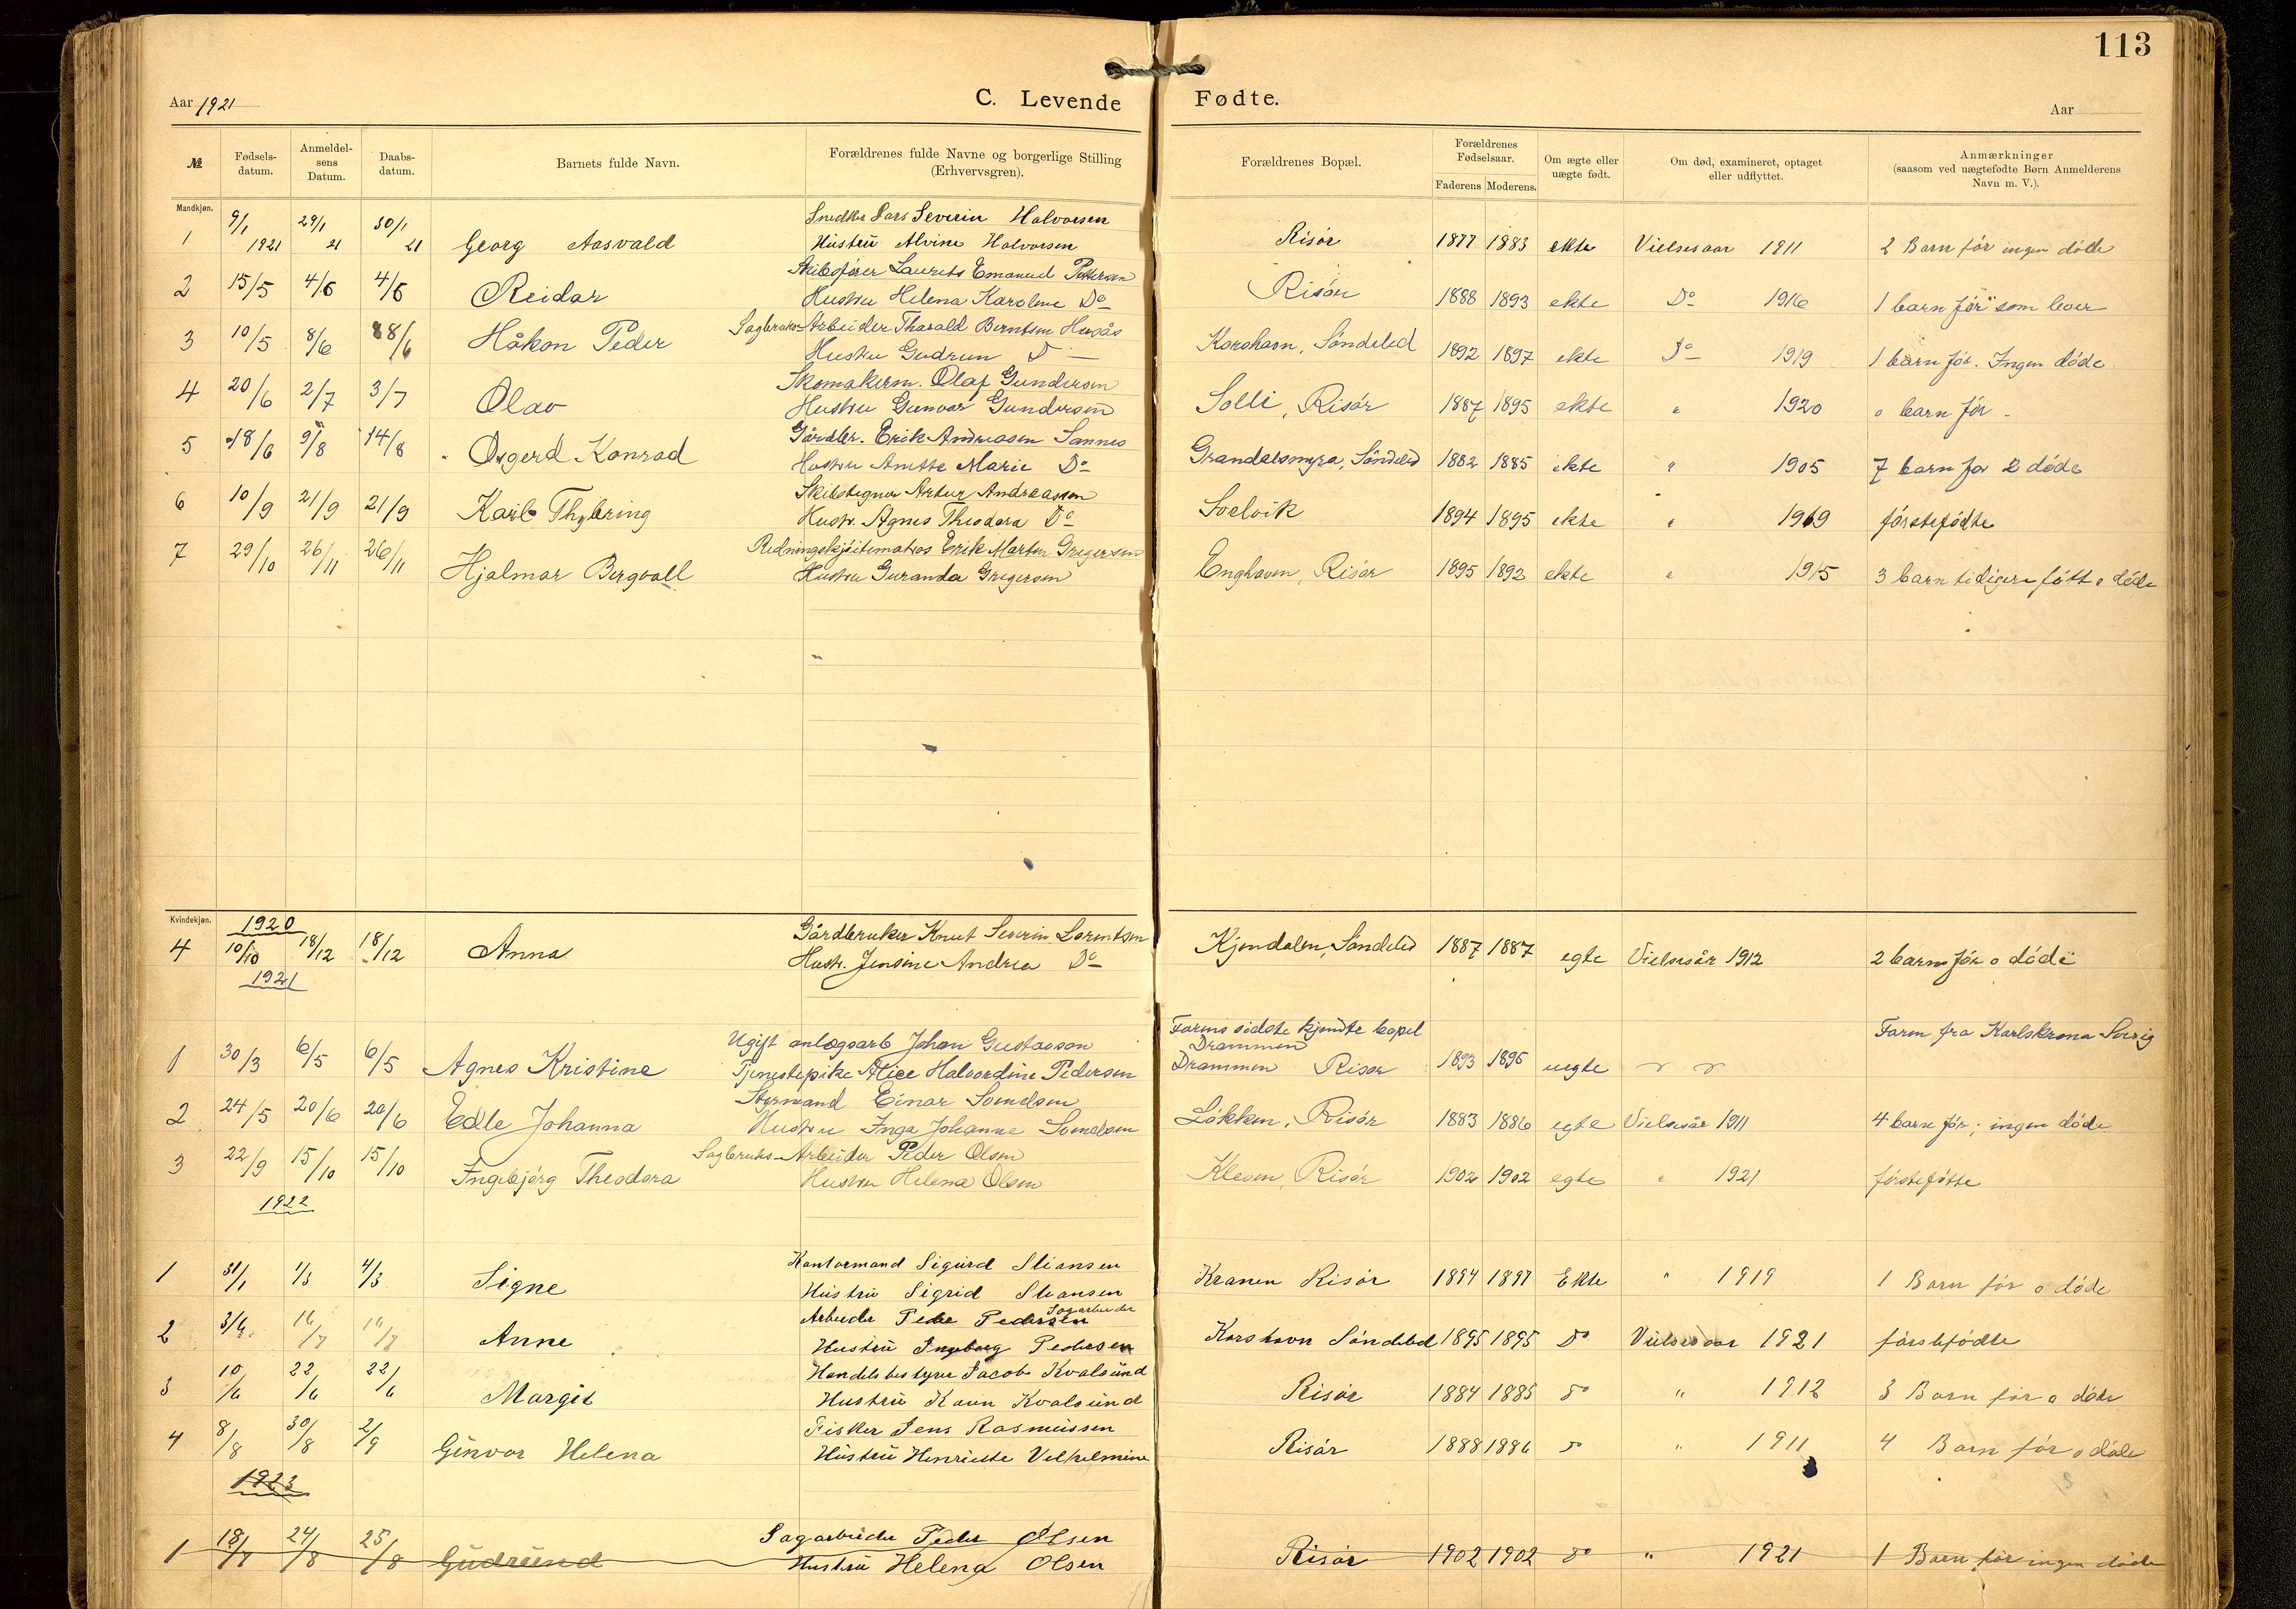 113
Aar 1921
C. Levende Fødte.
Aar
№
Fødsels-datum.
Anmeldel-sens Datum.
Daabs-datum.
Barnets fulde Navn.
Forældrenes fulde Navne og borgerlige Stilling (Erhvervsgren).
Forældrenes Bopæl.
Forældrenes Fødselsaar.
Faderens Moderens.
Om ægte eller uægte født.
Om død, examineret, optaget eller udflyttet.
Anmærkninger (saasom ved uægtefødte Børn Anmelderens Navn m. V.).
Mandkjøn.
Snedker Lars Severin Halvorsen
1 9/1 1921 29/1 21 30/1 21 Georg Aasvald Hustru Alvine Halvorsen Risør 1877 1883 ekte Vielsesaar 1911 2 Barn før ingen døde
Skibsfører Laurits Emanuel Pettersen
2 15/5 4/6 4/6 Reidar Hustru Helena Karoline Do Risør 1888 1893 ekte Do 1916 1 barn før som lever
Sagbruks-Arbeider Tharald Berntsen
3 10/5 8/6 Håkon Peder Hustru Gudrun D Korshavn, Søndeled 1892 1897 ekte Do 1919 1 barn før. Ingen døde
Skomakerm. Olaf Gundersen
4 20/6 2/7 3/7 Olav Hustru Gunvor Gundersen Solli, Risør 1887 1895 ekte " 1920 0 barn før -
Gårdbr. Erik Andreasen Sannes
5 18/6 9/8 14/8 Konrad Hustru Anette Marie Do Søndeled 1882 1885 ekte " 1905 7 barn før 2 døde
Skibstegner Artur Andreassen
6 10/9 21/9 21/9 Karl Thybring Hustr. Agnes Theodora Do Svelvik 1894 1895 ekte " 1919 førstefødte
Redningskjøitematros Erik Martin Gregersen
7 29/10 26/11 26/11 Hjalmar Bergvall Hustru Guranda Gregersen Enghaven, Risør 1895 1892 ekte " 1915 3 barn tidigere føtt 0 døde
Kvindekjøn.
1920
Gårdbruker Knut Severin Lorentsen
4 10/10 18/12 18/12 Anna Hustr. Jensine Andrea Do Kjendalen, Søndeled 1887 1887 egte Vielsesår 1912 2 barn før 0 døde
1921
Ugift anlegsarb Johan Gustavson Farens sidste kjendte bopel Drammen Faren fra Karlskrona Sverig
1 30/3 6/5 6/5 Agnes Kristine Tjenestepike Alice Halvordine Pedersen Drammen Risør 1893 1895 uegte
Styrmand Einar
2 24/5 20/6 20/6 Edle Johanna Hustru Inga Johanne Løkken, Risør 1883 1886 egte Vielsesår 1911 4 barn før; ingen døde
Sagbruks-Arbeider Peder Olsen
3 22/9 15/10 15/10 Ingebjørg Theodora Hustru Helena Olsen Kleven, Risør 1902 1902 egte " 1921 førsteføtte
1922
Kontormand Sigurd Stiansen
1 31/1 1/3 4/3 Signe Hustru Sigrid Stiansen Kranen Risør 1894 1897 Ekte " 1919 1 Barn før 0 døde
Arbeider Peder Pedersen Sagarbeider
2 3/6 16/7 16/7 Anne Hustru Ingeborg Pedersen Korshavn Søndeled 1895 1895 Do Vielsesaar 1921 førstefødte
Handelsbestyrer Jacob Kvalsund
3 10/6 22/6 22/6 Margit Hustru Karin Kvalsund Risør 1884 1885 do " 1912 3 Barn før 0 døde
Fisker Jens Rasmussen
4 8/8 30/8 2/9 Gunvor Helena Hustru Henriette Vilhelmine Risør 1888 1886 do " 1911 4 Barn før 0 døde
1923
Sagarbeider Peder Olsen
1 18/7 24/8 25/8 Gudrund Hustru Helena Olsen Risør 1902 1902 do " 1921 1 Barn før ingen døde